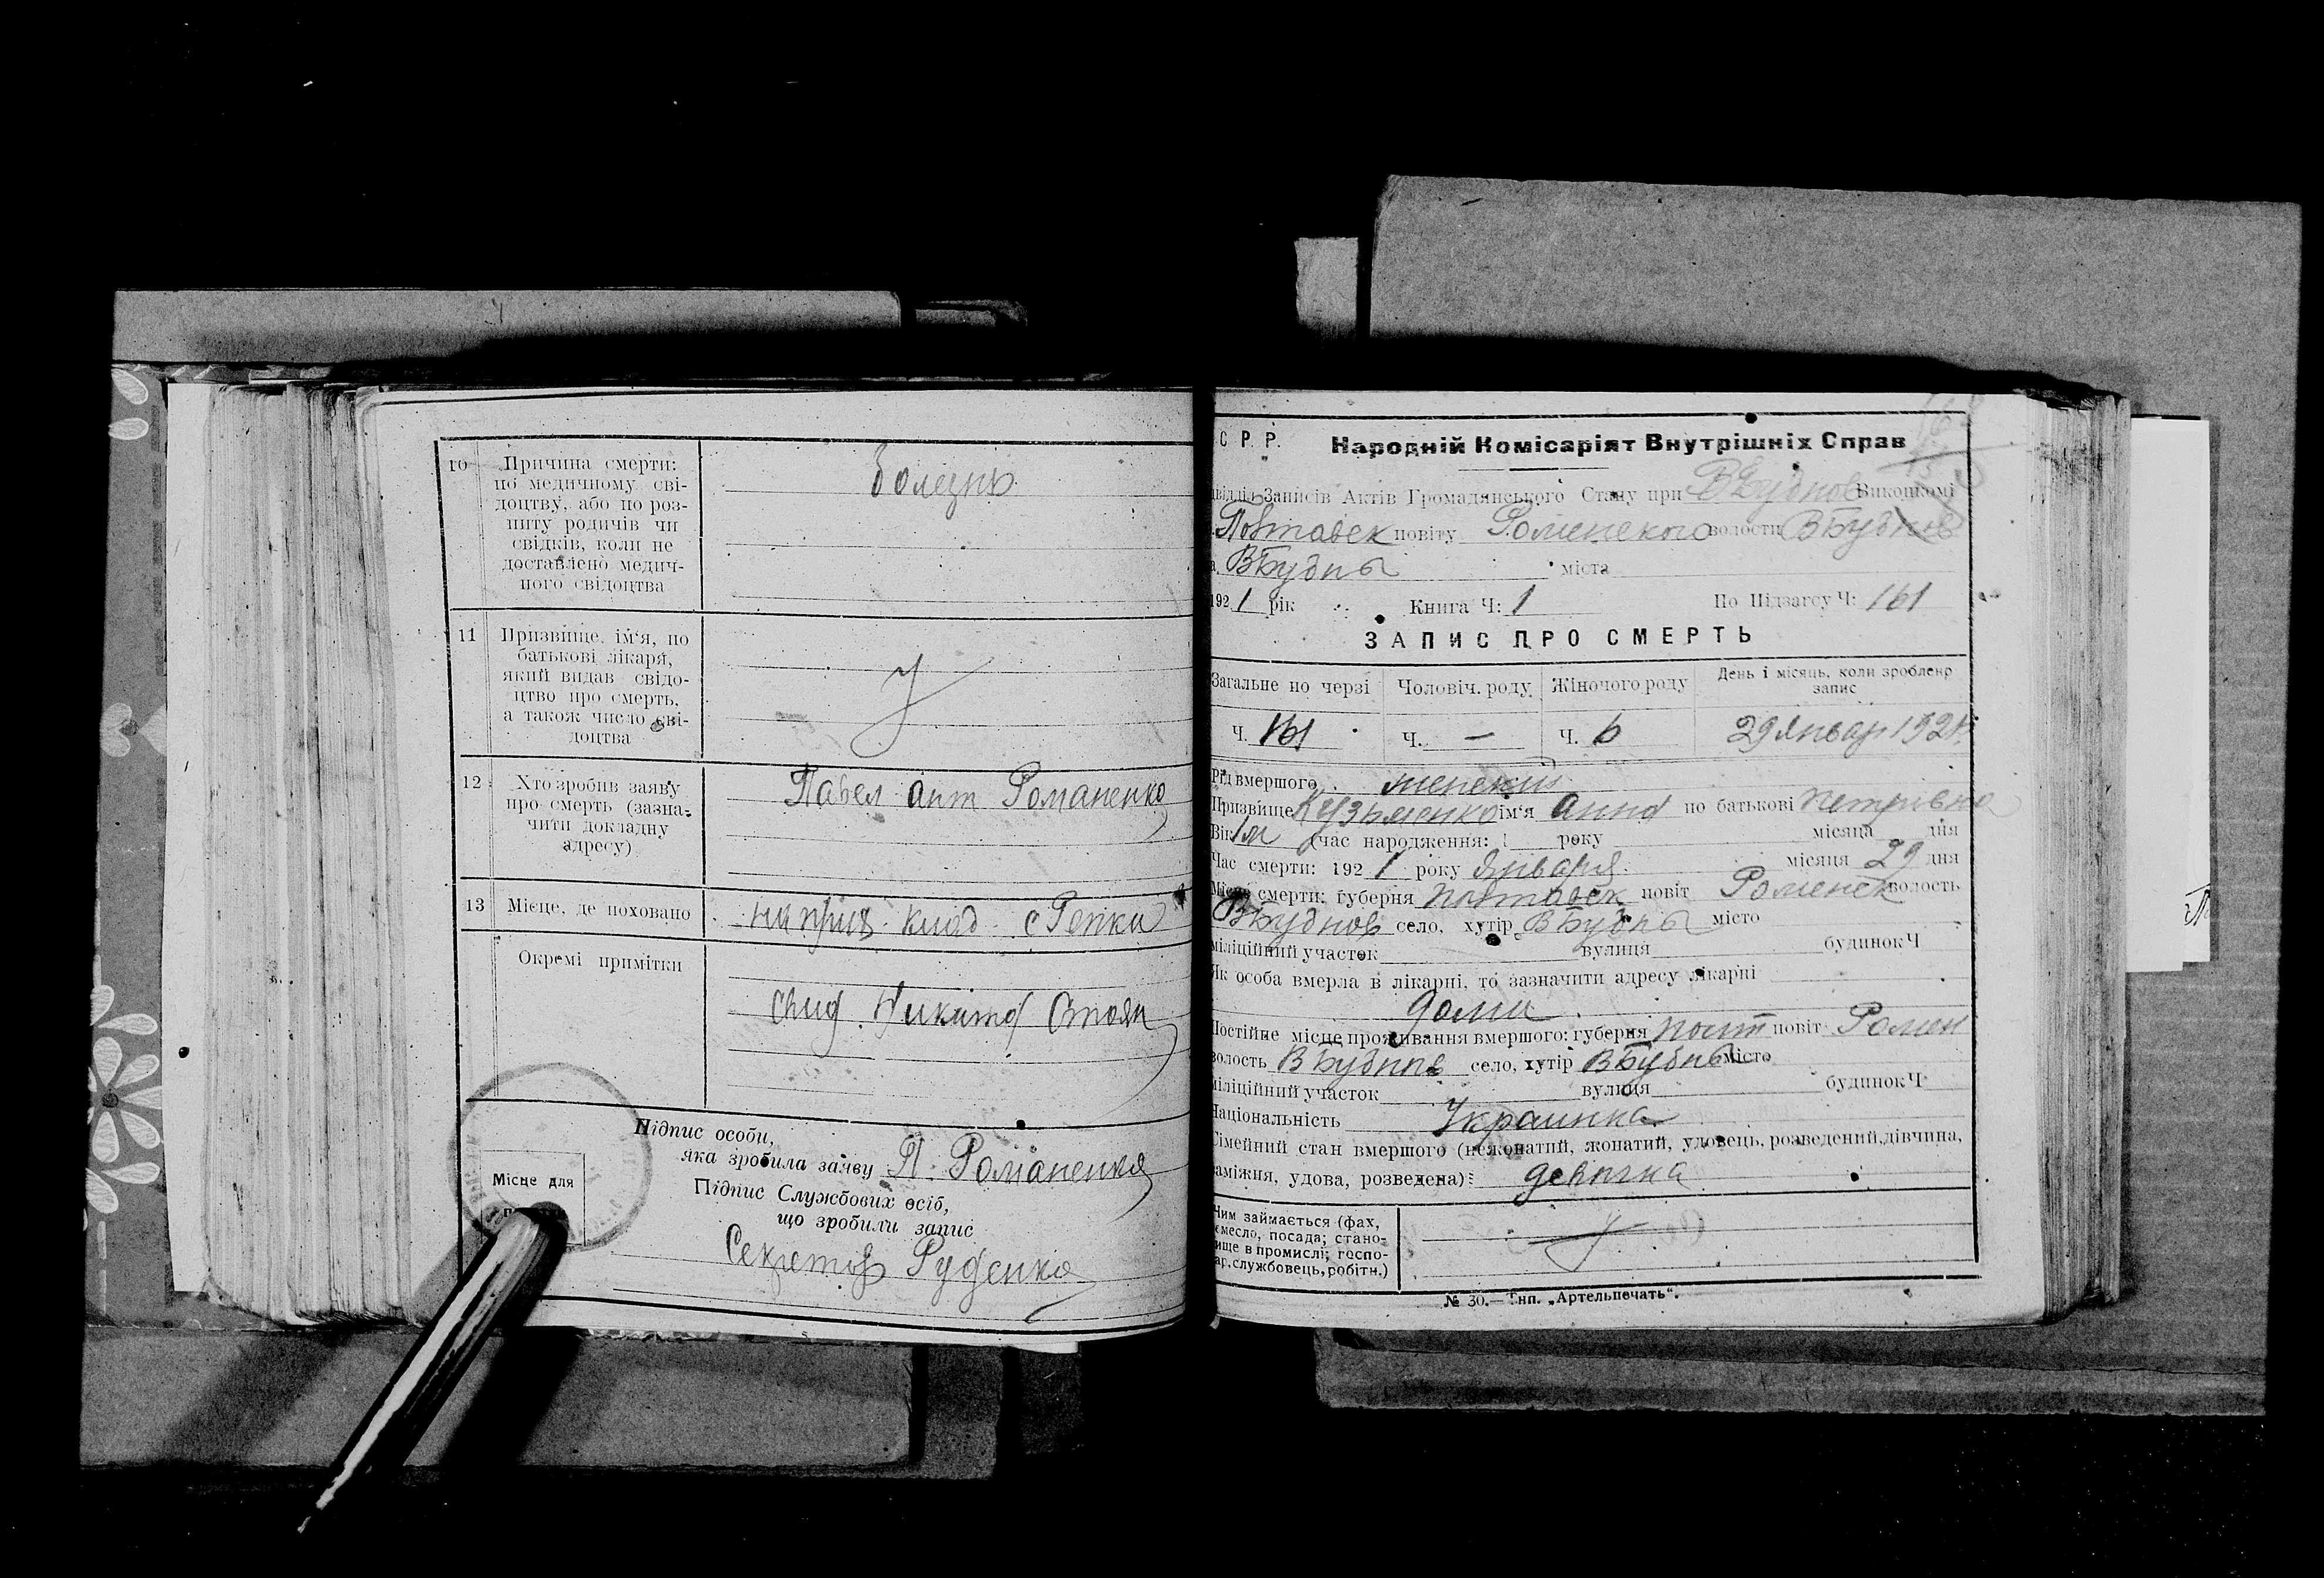 10 Причина смерти:
по медичному сві-
доцтву, або по роз-
питу родичів чи
свідків, коли не
доставлено медич-
ного свідоцтва
болезнь
11 Призвище, ім'я, по
батькові лікаря,
який видав свідо-
цтво про смерть,
а також число сві-
доцтва
12 Хто зробив заяву
про смерть (зазна-
чити докладну
адресу)
Павел Ант Романенко
13 Місце, де поховано
клад. с Репки
Окремі примітки
свид. Никита Стоян
Підпис особи,
яка зробила заяву П. Романенко
Підпис Службових осіб,
що зробили запис
Місце для
Секретарь Руденко
С. Р. Р. Народній Комісаріят Внутрішніх Справ
Записів Актів Громадянського Стану при ВБудков Виконкомі
Полтавск повіту Роменского волости ВБудков
ВБудкы міста
1921 рік Книга Ч: 1 По Підзагсу Ч: 161
ЗАПИС ПРО СМЕРТЬ
Загальне по черзі Чоловіч. роду Жіночого роду День і місяць, коли зроблено
запис
Ч. 161 Ч. — Ч. 6 29 Январ 1921
Рід вмершого женский
Призвище Кузьменко ім'я Анна по батькові Петрівна
Вік 1м (час народження: 1 року місяця дня
Час смерти: 1921 року Января місяця 29 дня
Місце смерти: губерня Полтавск повіт Роменск волость
ВБудков село, хутір ВБудкы місто
міліційний участок вулиця будинок Ч
Як особа вмерла в лікарні, то зазначити адресу лікарні
дома
Постійне місце проживання вмершого: губерня Полт повіт Ромен
волость ВБудков село, хутір ВБудкы місто
міліційний участок вулиця будинок Ч
Національність Украинка
Сімейний стан вмершого (нежонатий, жонатий, удовець, розведений, дівчина,
заміжня, удова, розведена) девочка
Чим займається (фах,
ремесло, посада; стано-
вище в промислі; госпо-
дар, службовець, робітн.)
№ 30.—Тип. „Артельпечать“.